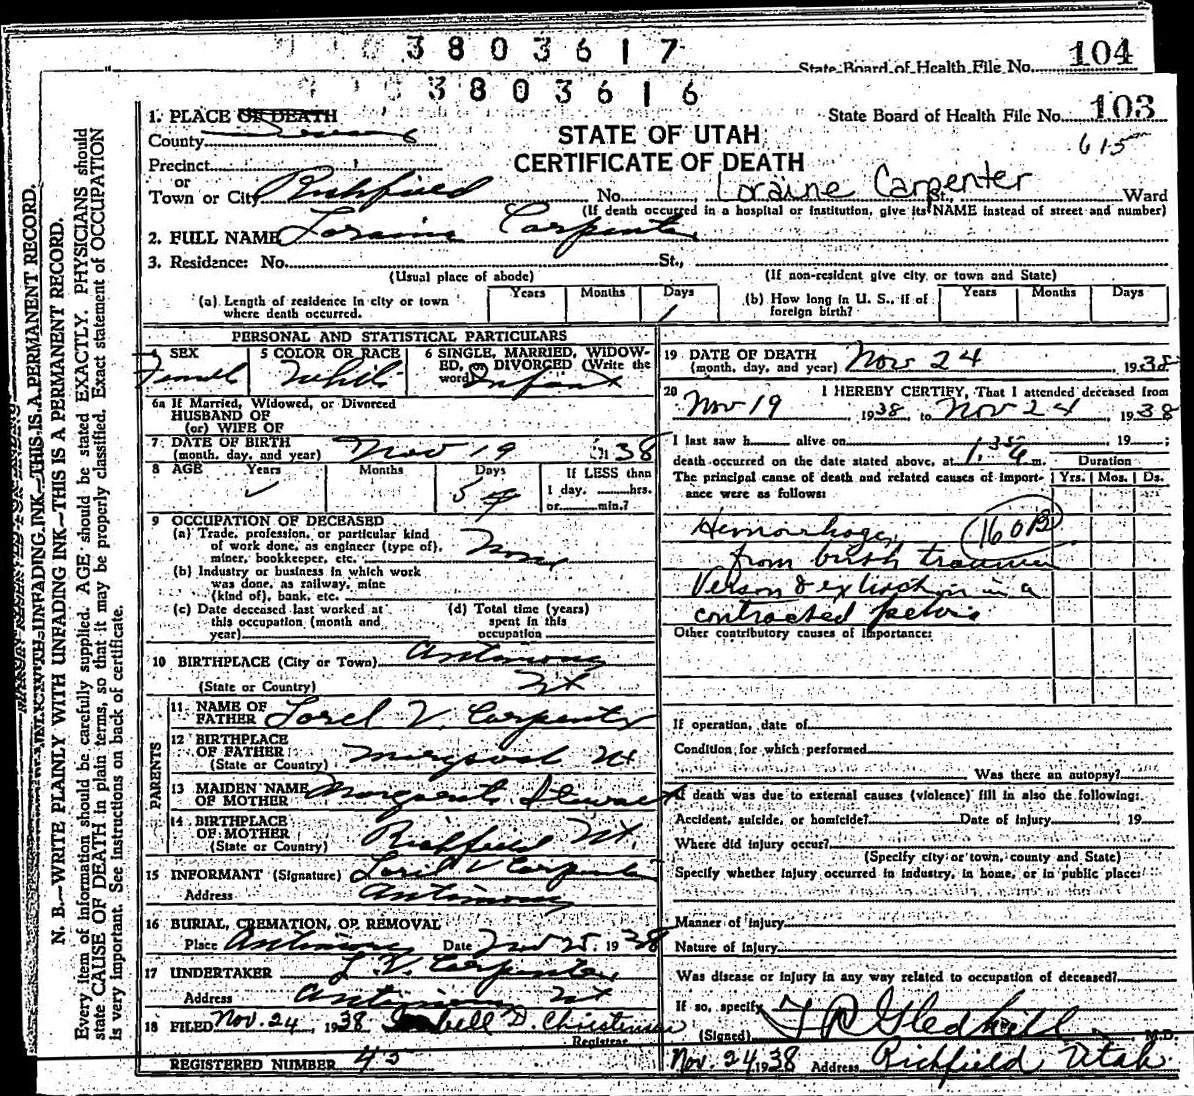 3803617
State Board of Health File No. 104
3803616
State Board of Health File No. 103
615
1. PLACE OF DEATH
STATE OF UTAH
CERTIFICATE OF DEATH
County Sevier
Precinct
or
Town or City Richfield No. Loraine Carpenter St., Ward
(If death occurred in a hospital or institution, give its NAME instead of street and number)
2. FULL NAME Loraine Carpenter
3. Residence: No. St.,
(Usual place of abode) (If non-resident give city or town and State)
(a) Length of residence in city or town where death occurred. Years Months Days 1
(b) How long in U. S., if of foreign birth? Years Months Days
PERSONAL AND STATISTICAL PARTICULARS
4 SEX Female
5 COLOR OR RACE White
6 SINGLE, MARRIED, WIDOWED, or DIVORCED (Write the word) Infant
6a If Married, Widowed, or Divorced
HUSBAND OF
(or) WIFE OF
7 DATE OF BIRTH
(month, day, and year) Nov 19 1938
8 AGE Years Months Days 5 If LESS than
1 day, hrs.
or min.?
9 OCCUPATION OF DECEASED
(a) Trade, profession, or particular kind
of work done, as engineer (type of),
miner, bookkeeper, etc. None
(b) Industry or business in which work
was done, as railway, mine
(kind of), bank, etc.
(c) Date deceased last worked at
this occupation (month and
year)
(d) Total time (years)
spent in this
occupation
10 BIRTHPLACE (City or Town) Antimony
(State or Country) Ut
PARENTS
11 NAME OF
FATHER Lorel V. Carpenter
12 BIRTHPLACE
OF FATHER
(State or Country) Ut
13 MAIDEN NAME
OF MOTHER
14 BIRTHPLACE
OF MOTHER
(State or Country) Richfield Ut.
15 INFORMANT (Signature) Lorel V Carpenter
Address Antimony
16 BURIAL, CREMATION, OR REMOVAL
Place Antimony Date Nov 25, 1938
17 UNDERTAKER L. V. Carpenter
Address Antimony Ut
18 FILED Nov. 24, 1938 D. Christensen
Registrar
REGISTERED NUMBER 45
19 DATE OF DEATH
(month, day, and year) Nov 24 1938
20 I HEREBY CERTIFY, That I attended deceased from
Nov 19, 1938 to Nov 24 1938
I last saw h alive on , 19 ;
death occurred on the date stated above, at 1:35 a m.
Duration
The principal cause of death and related causes of importance were as follows: Yrs. Mos. Ds.
Hemorrhage 160B
from birth trauma
Version & extraction in a
contracted pelvis
Other contributory causes of importance:
If operation, date of
Condition for which performed
Was there an autopsy?
If death was due to external causes (violence) fill in also the following:
Accident, suicide, or homicide? Date of injury 19
Where did injury occur?
(Specify city or town, county and State)
Specify whether injury occurred in industry, in home, or in public place:
Manner of injury
Nature of injury
Was disease or injury in any way related to occupation of deceased?
If so, specify
(Signed) T R Gledhill M.D.
Nov. 24 1938 Address Richfield Utah
N. B.—WRITE PLAINLY WITH UNFADING INK—THIS IS A PERMANENT RECORD.
Every item of information should be carefully supplied. AGE should be stated EXACTLY. PHYSICIANS should
state CAUSE OF DEATH in plain terms, so that it may be properly classified. Exact statement of OCCUPATION
is very important. See instructions on back of certificate.